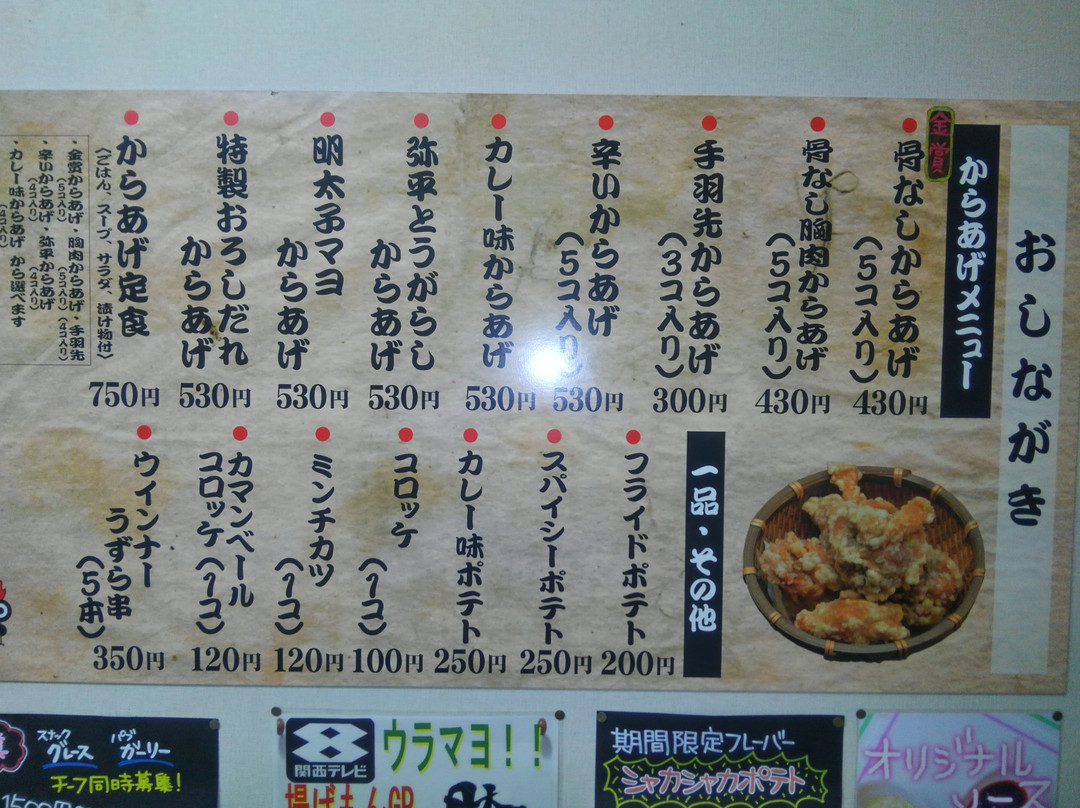 おしながき
からあげメニュー
金賞
骨なしからあげ
(5コ入り)
430円
骨なし胸肉からあげ
(5コ入り)
430円
手羽先からあげ
(3コ入り)
300円
辛いからあげ
(5コ入り)
530円
カレー味からあげ
530円
弥平とうがらし
からあげ
530円
明太子マヨ
からあげ
530円
特製おろしだれ
からあげ
530円
からあげ定食
(ごはん、スープ、サラダ、漬け物付)
750円
・金賞からあげ・胸肉からあげ・手羽先
(5コ入り)(5コ入り)(4コ入り)
・辛いからあげ・弥平からあげ
(4コ入り)(4コ入り)
・カレー味からあげ から選べます
(4コ入り)
一品・その他
フライドポテト
200円
スパイシーポテト
250円
カレー味ポテト
250円
コロッケ
(1コ)
100円
ミンチカツ
(1コ)
120円
カマンベール
コロッケ(1コ)
120円
ウインナー
うずら串
(5本)
350円
スナック
グレース
パブ
ガーリー
チーフ同時募集!
1500円
関西テレビ
ウラマヨ!!
揚げもんGP
期間限定フレーバー
シャカシャカポテト
オリジナル
ソース